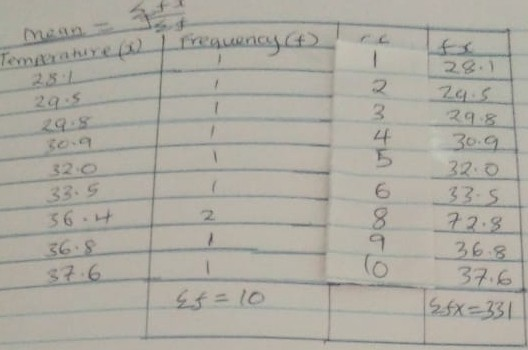 mean = Σfx / Σf
Temperature (x) Frequency (f) c.f fx
28.1 1 1 28.1
29.5 1 2 29.5
29.8 1 3 29.8
30.9 1 4 30.9
32.0 1 5 32.0
33.5 1 6 33.5
36.4 2 8 72.8
36.8 1 9 36.8
37.6 1 10 37.6
Σf = 10 Σfx = 331